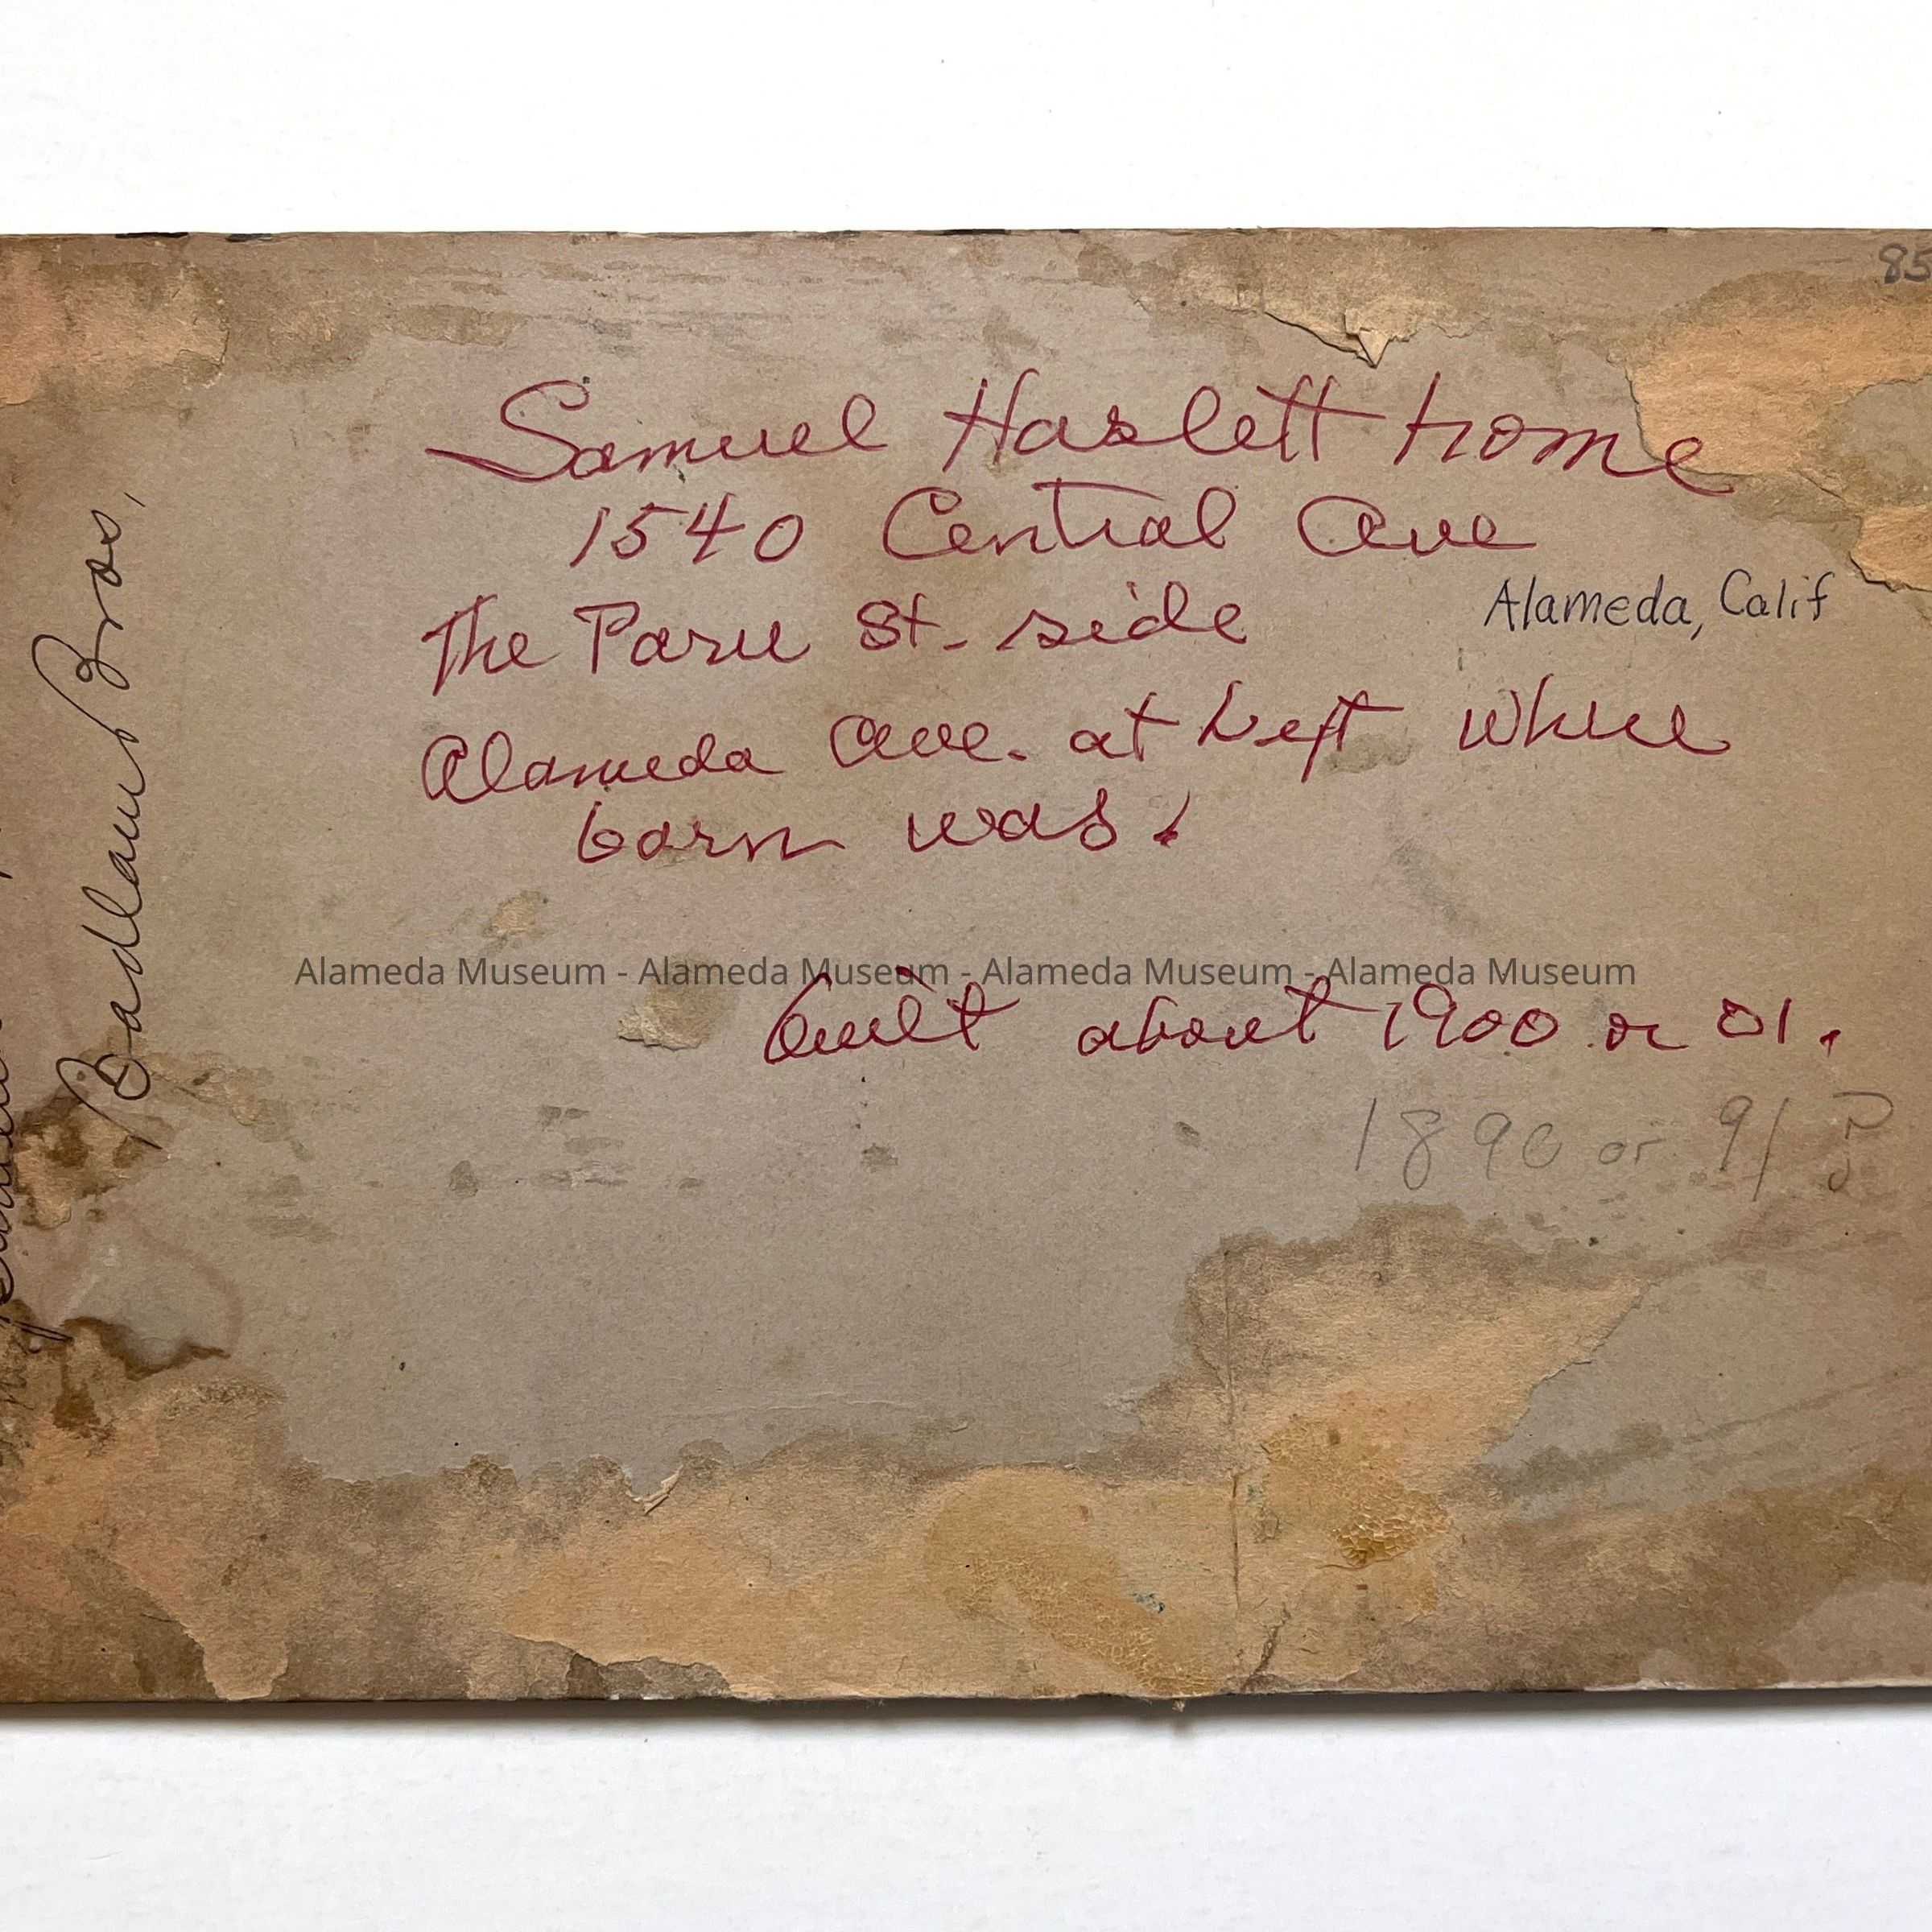 85
Samuel Haslett home
1540 Central Ave
Alameda, Calif
The Paru St. side
Alameda Ave. at Left Where
barn was.
Alameda Museum - Alameda Museum - Alameda Museum - Alameda Museum
built about 1900 or 01.
1890 or 91?
Bros,